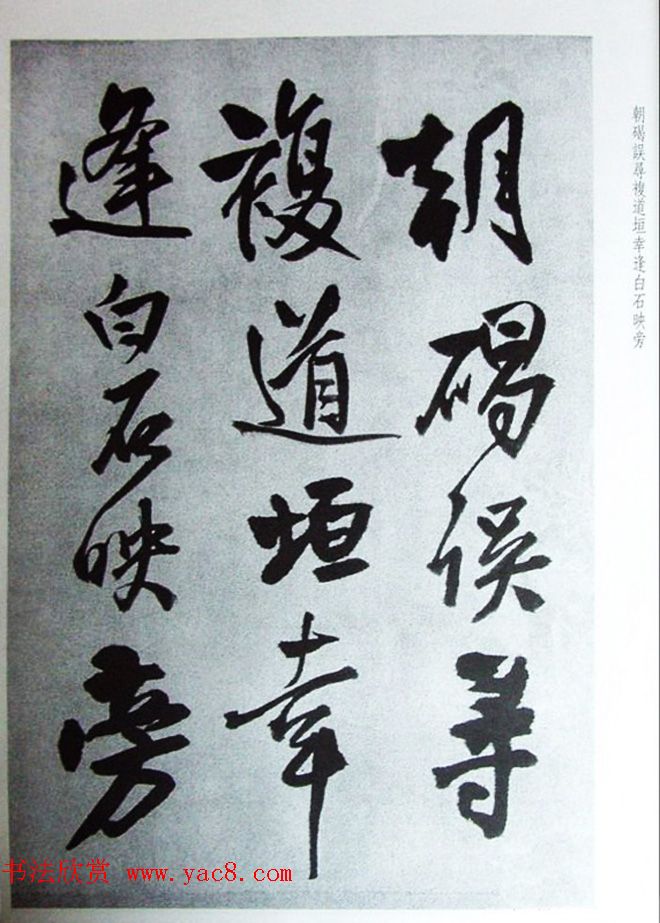 朝碣誤尋
複道垣幸
逢白石映旁
朝碣誤尋複道垣幸逢白石映旁
书法欣赏 www.yac8.com